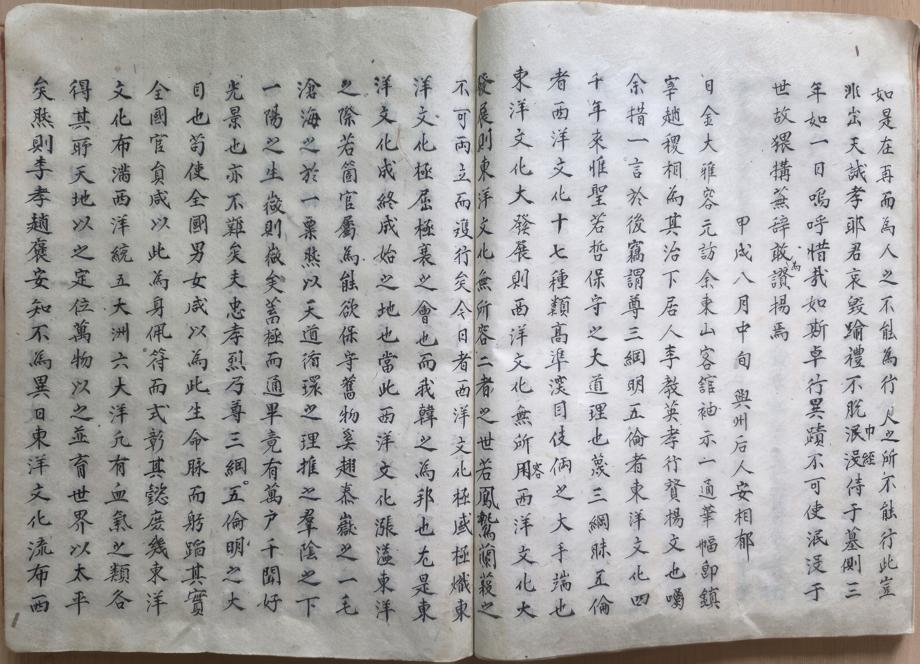 如是在再而為人之不能為行人之所不能行此豈
非出天誠孝耶君哀毀踰禮不脫巾絰侍于墓側三
年如一日嗚呼惜哉如斯卓行異蹟不可使泯沒于
世故猥搆蕪辭敢為讚揚焉
甲戌八月中旬 興州后人安相郁
日金大雅容元訪余東山客舘袖示一通華幅卽鎭
宰趙稷相為其治下居人李敎英孝行賛揚文也囑
余措一言於後竊謂尊三綱明五倫者東洋文化四
千年來惟聖若哲保守之大道理也蔑三綱昧五倫
者西洋文化十七種類高準深目伎倆之大手端也
東洋文化大發展則西洋文化無所容西洋文化大
發展則東洋文化無所容二者之世若鳳鷲蘭蔱之
不可両立而㕠行矣今日者西洋文化極盛極熾東
洋文化極屈極衰之會也而我韓之為邦也尤是東
洋文化成終成始之地也當此西洋文化漲溢東洋
之際若箇官屬為能欲保守舊物奚趐泰嶽之一毛
滄海之於一粟然以天道循環之理推之羣陰之下
一陽之生微則微矣蓄極而通畢竟有萬户千閭好
光景也亦不難矣夫忠孝烈乃尊三綱五倫明之大
目也苟使全國男女咸以為此生命脉而躬蹈其實
全國官員咸以此為身佩符而式彰其懿庶幾東洋
文化布満西洋統五大洲六大洋凡有血氣之類各
得其所天地以之定位萬物以之並育世界以太平
矣然則李孝趙褒安知不為異日東洋文化流布西